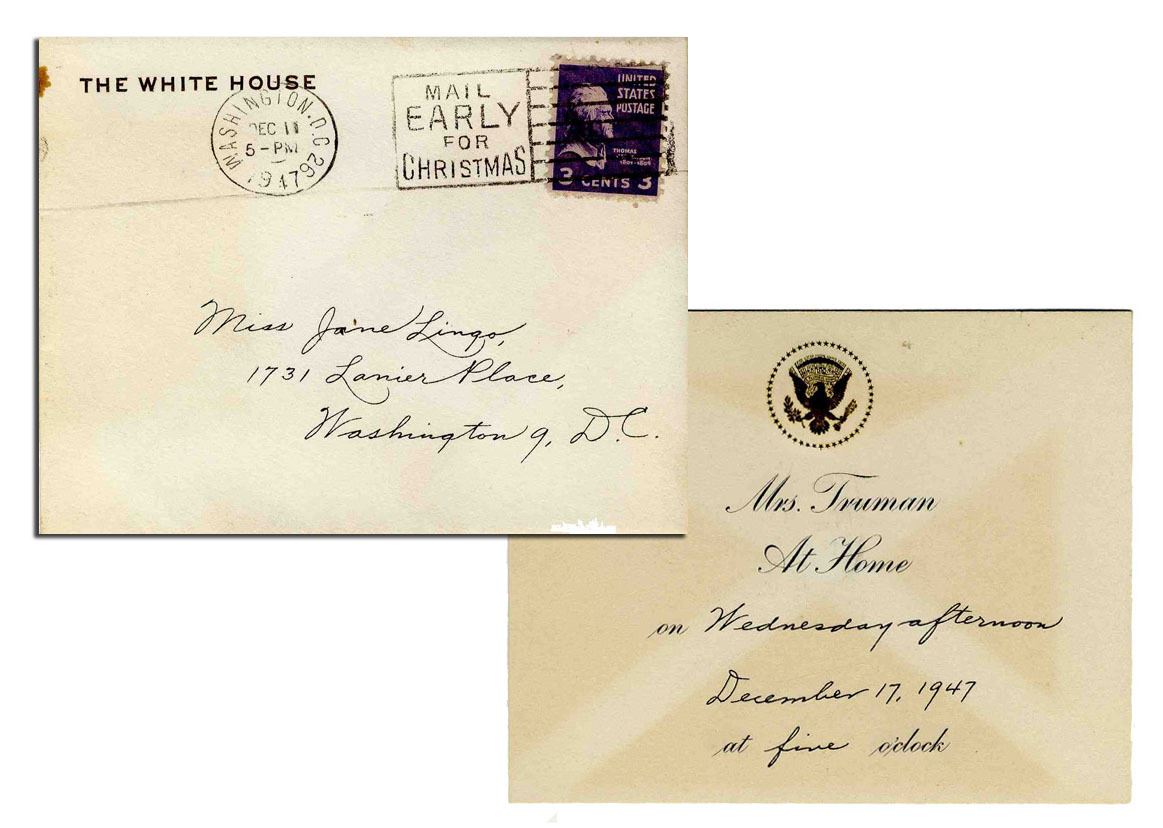 THE WHITE HOUSE
WASHINGTON. D.C. 26
DEC 11
5 - PM
1947
MAIL
EARLY
FOR
CHRISTMAS
UNITED
STATES
POSTAGE
THOMAS
1801-1809
3 CENTS 3
Miss Jane Lingo,
1731 Lanier Place,
Washington 9, D.C.
Mrs. Truman
At Home
on Wednesday afternoon
December 17, 1947
at five o'clock